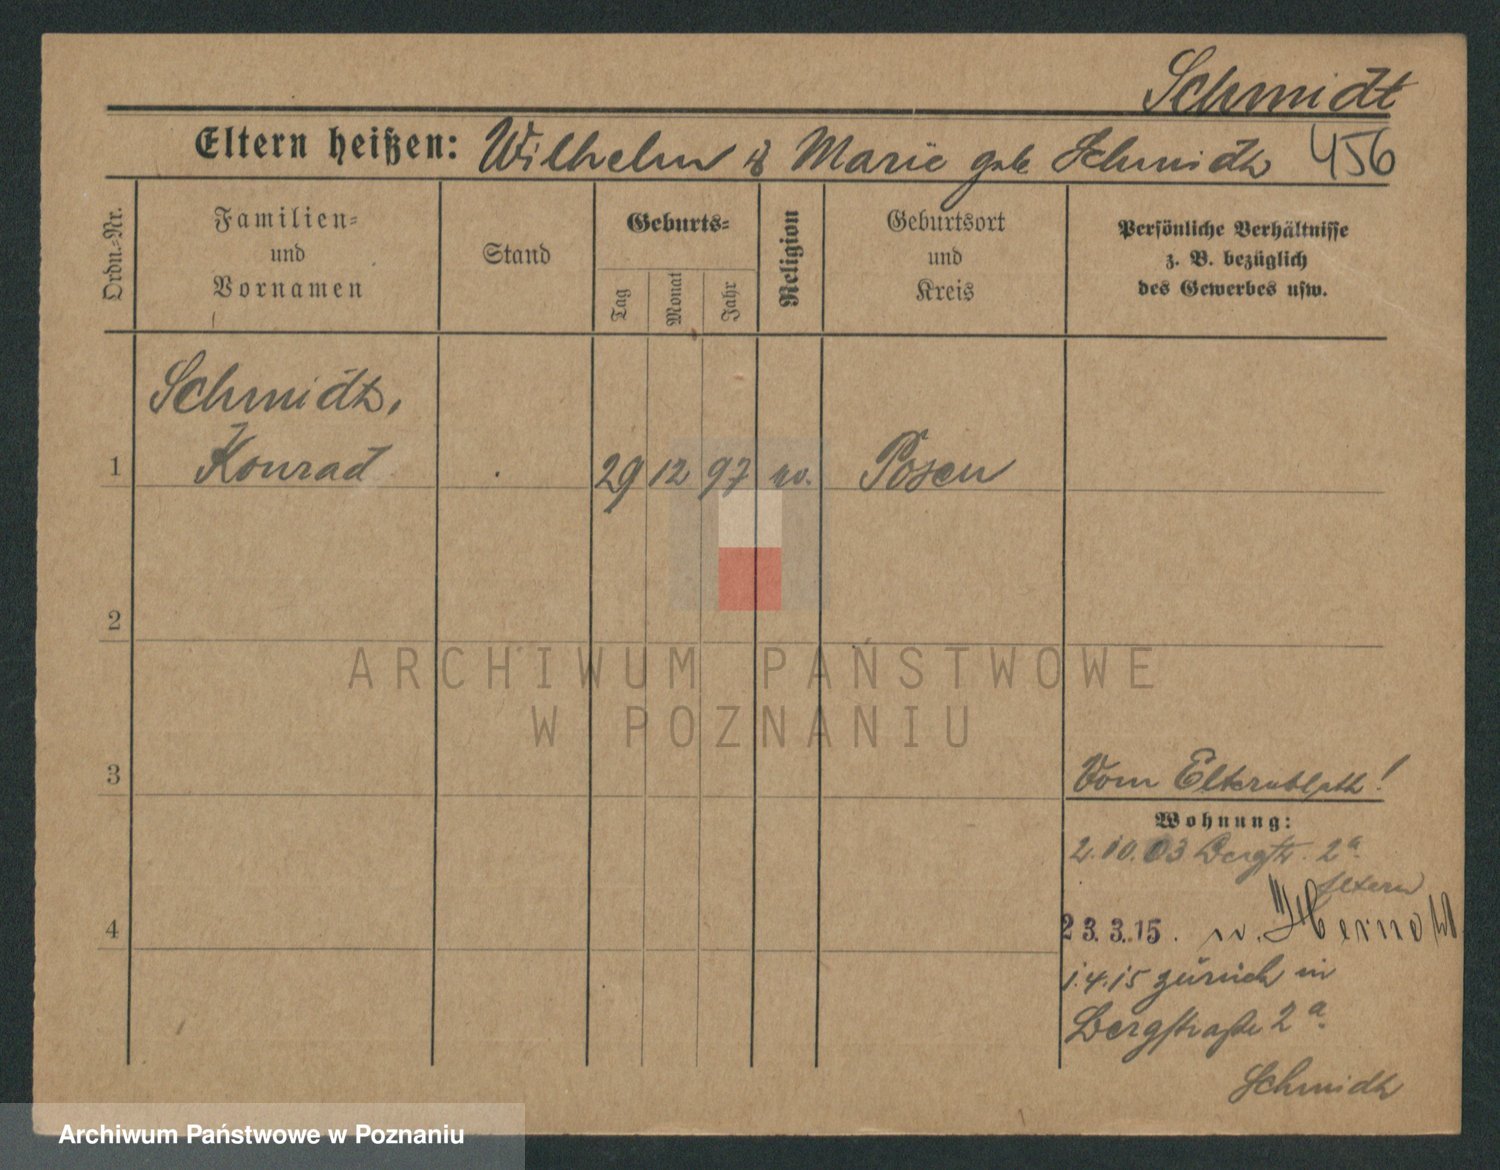 Schmidt
Eltern heißen: Wilhelm & Marie geb Schmidt 456
Ordn.-Nr.
Familien-
und
Vornamen
Stand
Geburts-
Tag
Monat
Jahr
Religion
Geburtsort
und
Kreis
Persönliche Verhältnisse
z. B. bezüglich
des Gewerbes usw.
Schmidt,
1 Konrad 29 12 97 ev. Posen
2
ARCHIWUM PAŃSTWOWE
W POZNANIU
3
Vom Elternblatt!
Wohnung:
2.10.03 Bergstr. 2a.
Eltern
4
23.3.15. n.
1.4.15 zurück in
Bergstraße 2a.
Schmidt
Archiwum Państwowe w Poznaniu